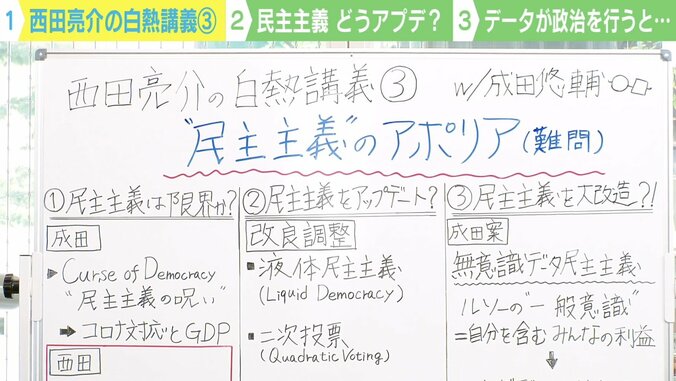 1 西田亮介の白熱講義③ 2 民主主義 どうアプデ? 3 データが政治を行うと…
西田亮介の白熱講義③ w/成田悠輔
"民主主義"のアポリア(難問)
①民主主義は限界か?
成田
Curse of Democracy
"民主主義の呪い"
➡ コロナ対応とGDP
西田
②民主主義をアップデート?
改良調整
・液体民主主義
(Liquid Democracy)
・二次投票
(Quadratic Voting)
③民主主義を大改造?!
成田案
無意識データ民主主義
ルソーの"一般意識"
=自分を含むみんなの利益